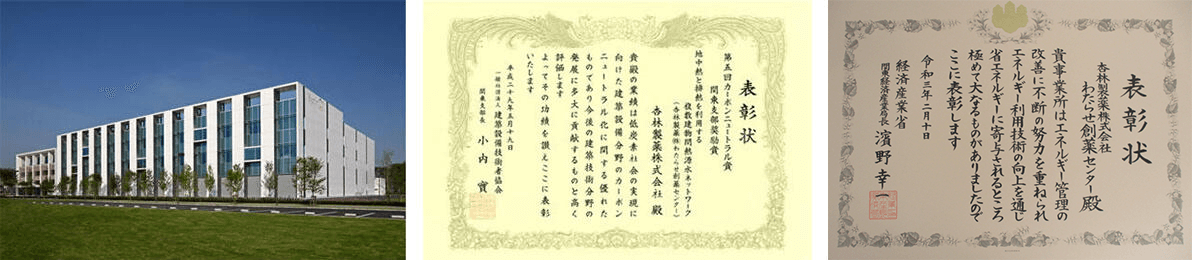 表彰状
第五回カーボンニュートラル賞
関東支部奨励賞
地中熱と排熱を利用する
複数建物間熱源水ネットワーク
(杏林製薬(株)わたらせ創薬センター)
杏林製薬株式会社 殿
貴殿の業績は低炭素社会の実現に
向けた建築設備分野のカーボン
ニュートラル化に関する優れた
ものであり今後の建築技術分野の
発展に多大に貢献するものと高く
評価します
よってその功績を讃えここに表彰
いたします
平成二十九年五月十九日
一般社団法人 建築設備技術者協会
関東支部長 小内 實
表彰状
杏林製薬株式会社
わたらせ創薬センター殿
貴事業所はエネルギー管理の
改善に不断の努力を重ねられ
エネルギー利用技術の向上を通じ
省エネルギーに寄与されるところ
極めて大なるものがありましたので
ここに表彰します
令和三年二月十日
経済産業省
関東経済産業局長 濱野幸一